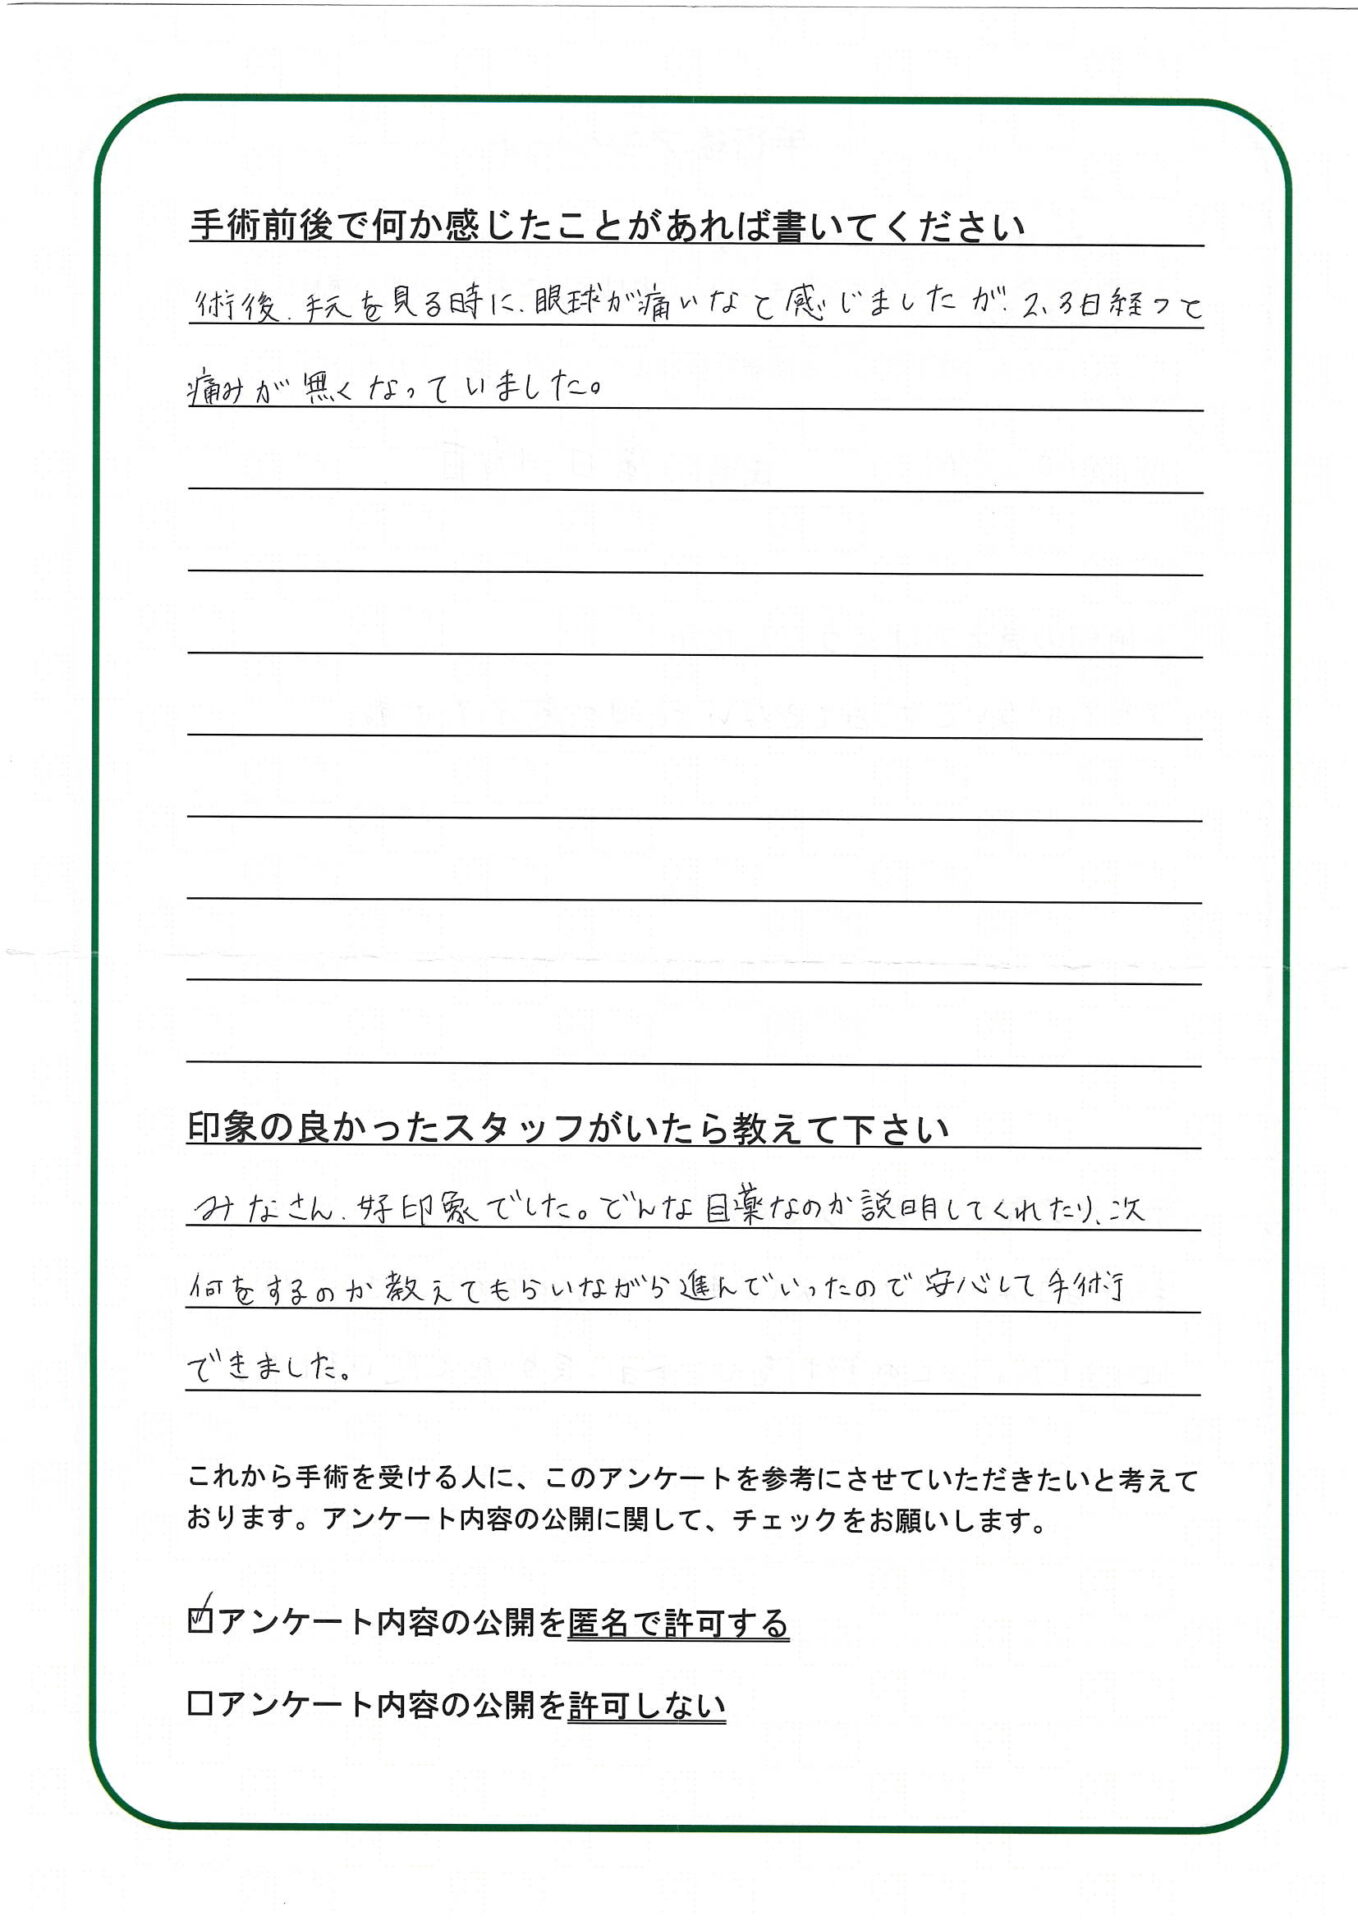 手術前後で何か感じたことがあれば書いてください
術後、手元を見る時に、眼球が痛いなと感じましたが、2、3日経つと
痛みが無くなっていました。
印象の良かったスタッフがいたら教えて下さい
みなさん、好印象でした。どんな目薬なのか説明してくれたり、次
何をするのか教えてもらいながら進んでいったので安心して手術
できました。
これから手術を受ける人に、このアンケートを参考にさせていただきたいと考えて
おります。アンケート内容の公開に関して、チェックをお願いします。
☑アンケート内容の公開を匿名で許可する
□アンケート内容の公開を許可しない